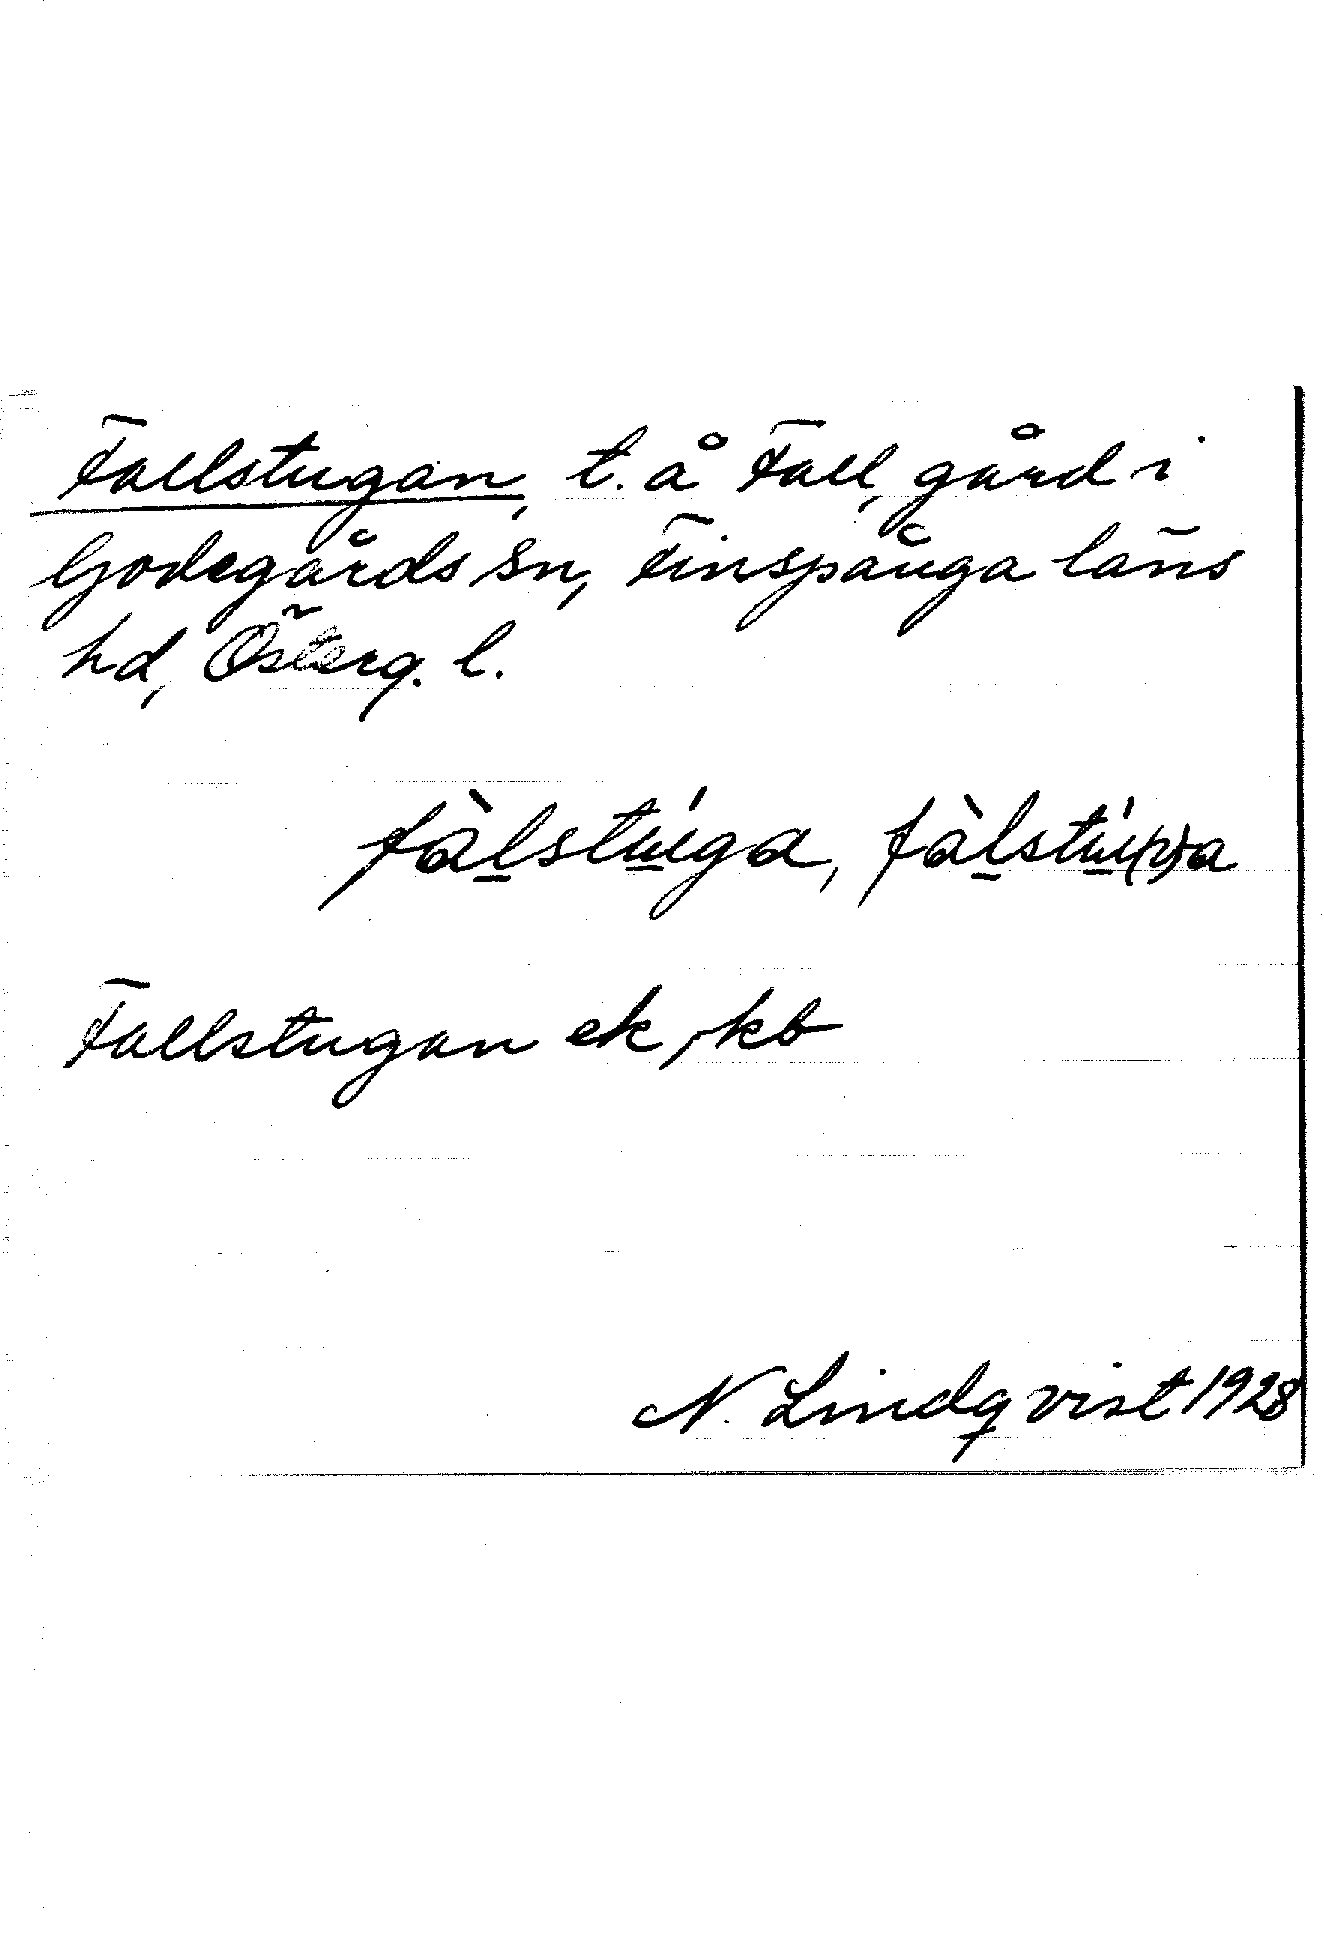 Fallstugan, t. å Fall, gård i
Godegårds sn, Finspånga läns
hd, Österg. l.
fàl̲stú̲ga, fàl̲stú̲(w)a
Fallstugan ek, kb
N. Lindqvist 1928